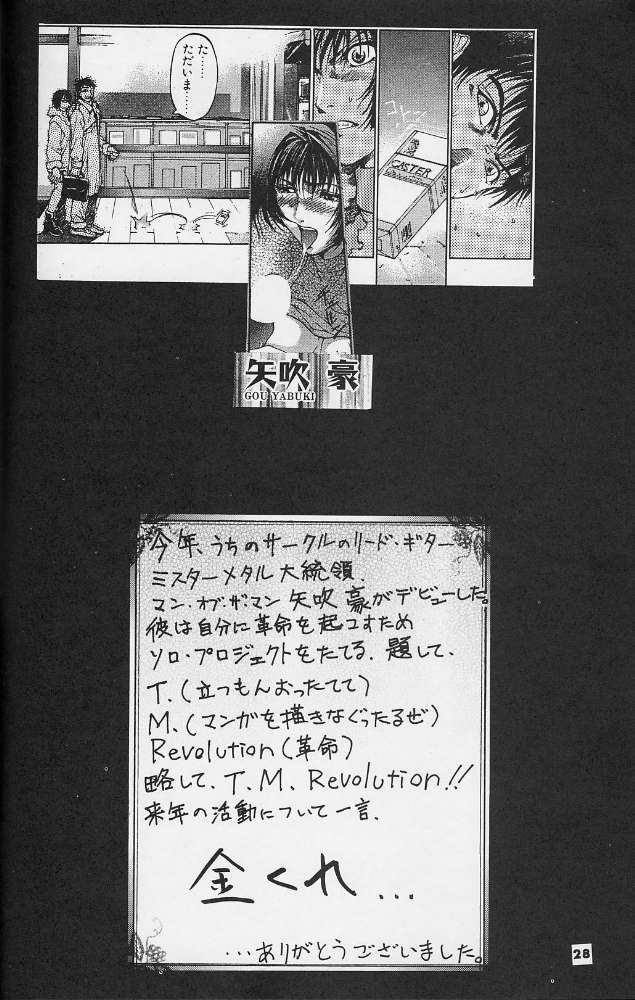 た……
ただいま…
コトン
CASTER
矢吹 豪
GOU YABUKI
今年、うちのサークルのリード・ギター
ミスターメタル大統領、
マン・オブ・ザ・マン 矢吹 豪がデビューした。
彼は自分に革命を起コすため
ソロ・プロジェクトをたてる。題して、
T.(立つもんおったてて)
M.(マンガを描きなぐったるぜ)
Revolution(革命)
略して、T.M.Revolution!!
来年の活動について一言、
金くれ…
…ありがとうございました。
28